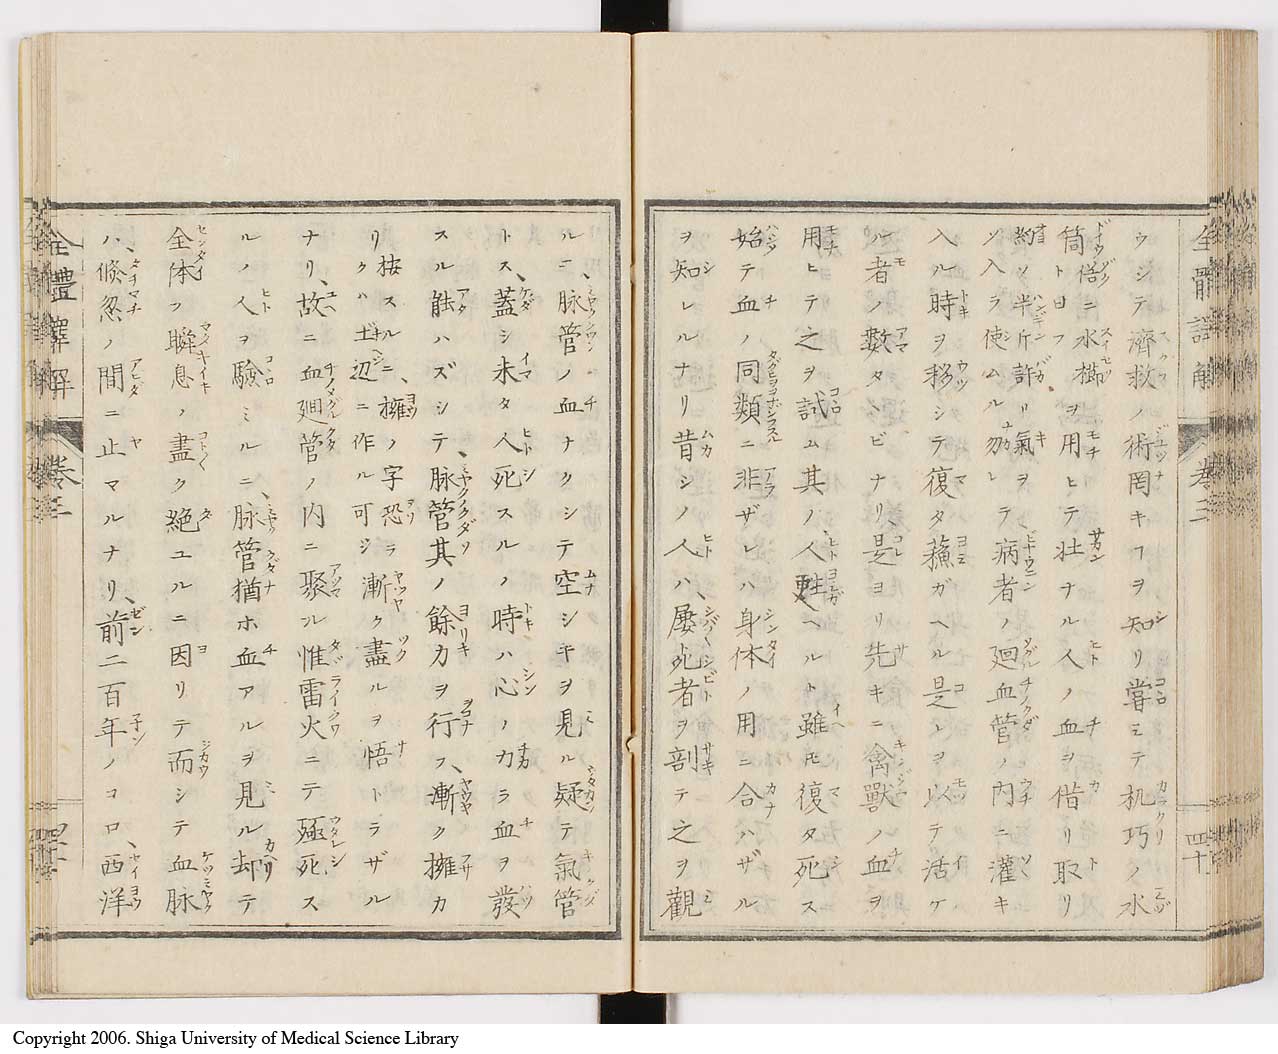 ウシテ濟救ノ術罔キヿヲ知リ甞ミテ机巧ノ水
筒 俗ニ水櫛ト曰フ ヲ用ヒテ壮ナル人ノ血ヲ借リ取リ
約ソ半斤許リ氣ヲシ入ラ使ムル勿レ テ病者ノ廻血管ノ内ニ灌キ
入ル時ヲ移シテ復タ蘓ガヘル是レヲ以テ活ケ
ル者ノ數タビナリ是ヨリ先キニ禽獸ノ血ヲ
用ヒテ之ヲ試ム其ノ人甦ヘルト雖モ復タ死ス
始テ血ノ同類ニ非ザレハ身体ノ用ニ合ハザル
ヲ知レルナリ昔シノ人ハ、屡〻死者ヲ剖テ之ヲ觀
ルニ、脉管ノ血ナクシテ空シキヲ見ル疑テ氣管
トス、蓋シ未タ人死スルノ時ハ心ノカラ血ヲ發
スル能ハズシテ、脉管其ノ餘カヲ行フ、漸ク擁カ
リ 按スルニ、擁ノ字恐ラクハ壅辺ニ作ル可シ 漸ク盡ルヲ悟トラザル
ナリ、故ニ血廻管ノ内ニ聚ル惟雷火ニテ殛死ス
ルノ人ヲ驗ミルニ、脉管猶ホ血アルヲ見ル却テ
全体フ瞬息ノ盡ク絶ユルニ因リテ而シテ血脉
ハ、倏忽ノ間ニ止マルナリ、前二百年ノコロ、西洋
全體
卷三
四十
Copyright 2006. Shiga University of Medical Science Library